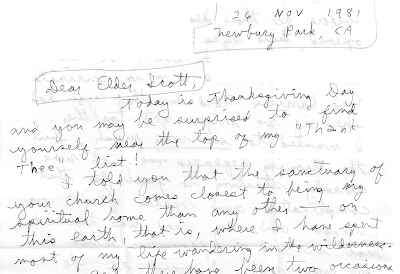 26 NOV 1981
Newbury Park, CA
Dear Elder Scott,
Today is Thanksgiving Day
and you may be surprised to find
yourself near the top of my "Thank
Thee" list!
I told you that the sanctuary of
your church comes closest to being my
spiritual home than any other — on
this earth, that is, where I have spent
most of my life wandering in the wilderness.
there have been two occasions